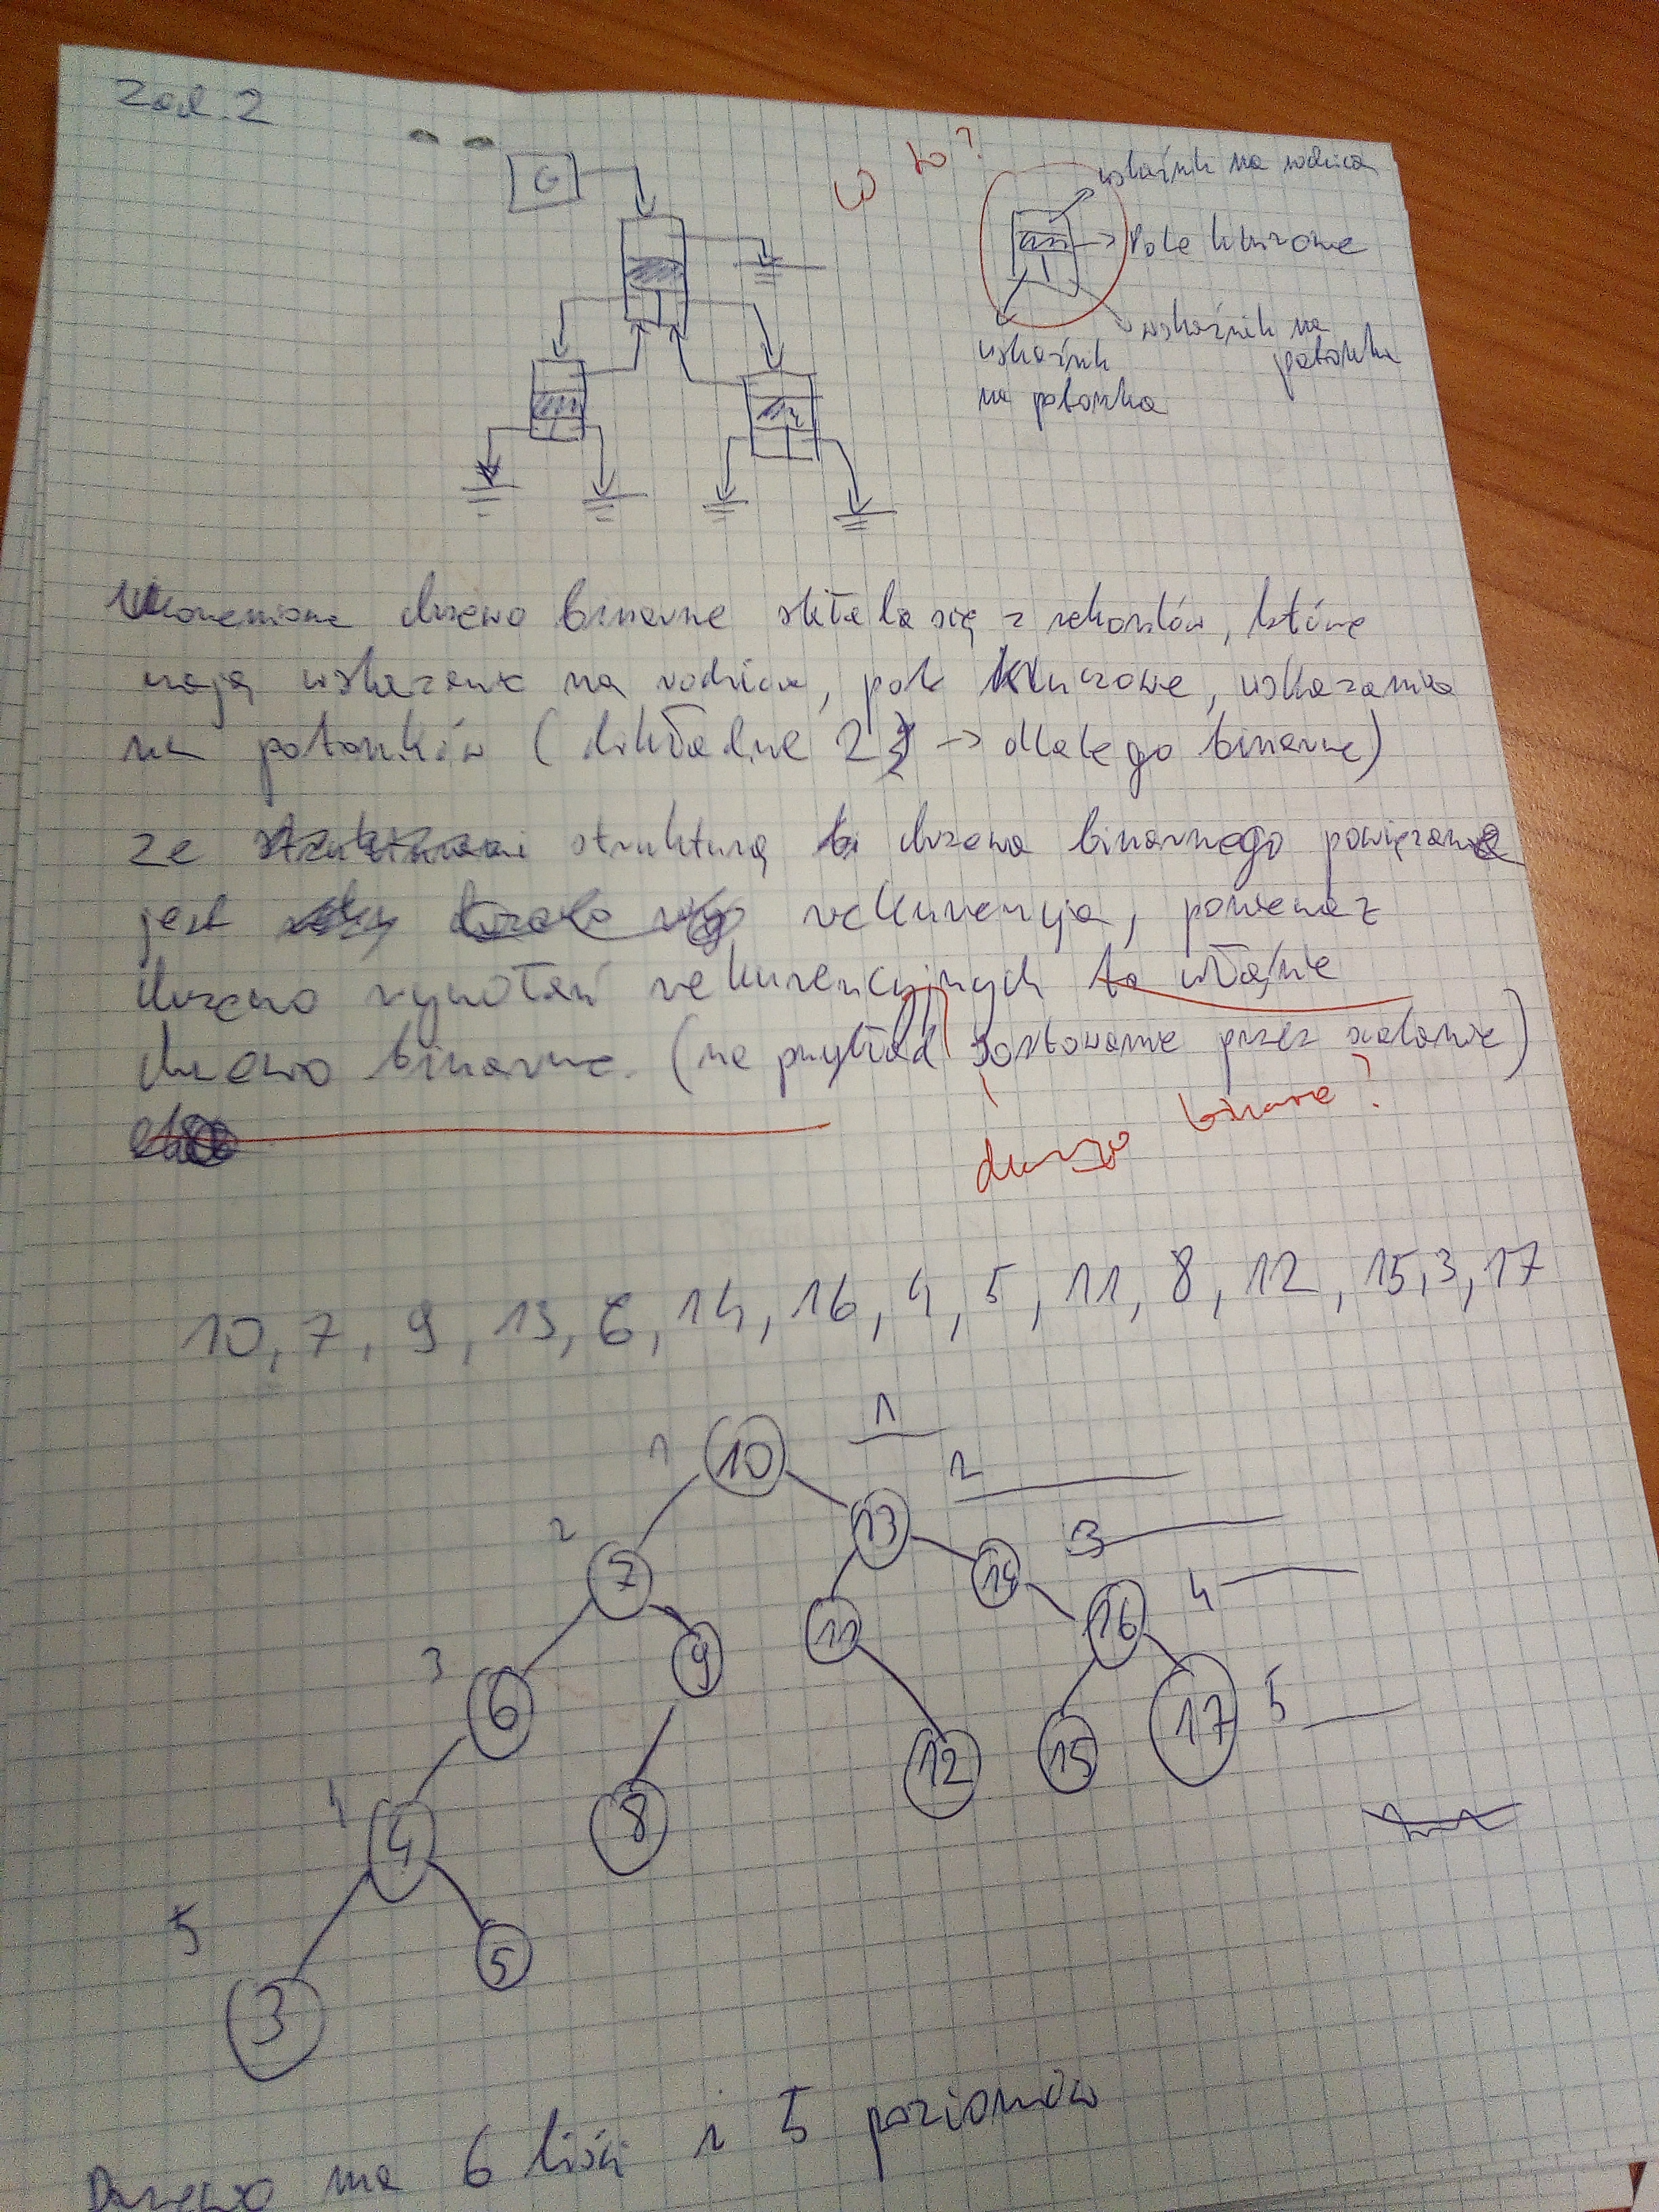 Zad. 2
G
co to?
wskaźnik na rodzica
Pole kluczowe
wskaźnik na
potomka
wskaźnik
na potomka
Ukorzenione drzewo binarne składa się z rekordów, które
mają wskazanie na rodzica, pole kluczowe, wskazania
na potomków (dokładnie 2 -> dlatego binarne)
ze strukturą drzewa binarnego powiązane
jest rekurencja, ponieważ
drzewo wywołań rekurencyjnych to właśnie
drzewo binarne. (na przykład sortowanie przez scalanie)
drzewo binarne?
10, 7, 9, 13, 6, 14, 16, 4, 5, 11, 8, 12, 15, 3, 17
1 10 1
2
13
2 7 14 3
11 16 4
3 6 9
17 5
12 15
4 4 8
5 5
3
Drzewo ma 6 liści i 5 poziomów